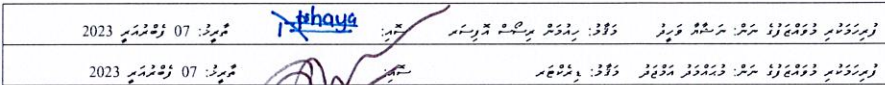 ފުރިހަމަކުރި މުވައްޒަފުގެ ނަން: ނަޝާޔާ ވަހީދު މަޤާމު: ހިއުމަން ރިސޯސް އޮފިސަރ ސޮއި: تާރީޚު: 07 ފެބްރުއަރީ 2023
ފުރިހަމަކުރި މުވައްޒަފުގެ ނަން: މުޙައްމަދު އަމްޖަދު މަޤާމު: ޑިރެކްޓަރ ސޮއި: ތާރީޚު: 07 ފެބްރުއަރީ 2023